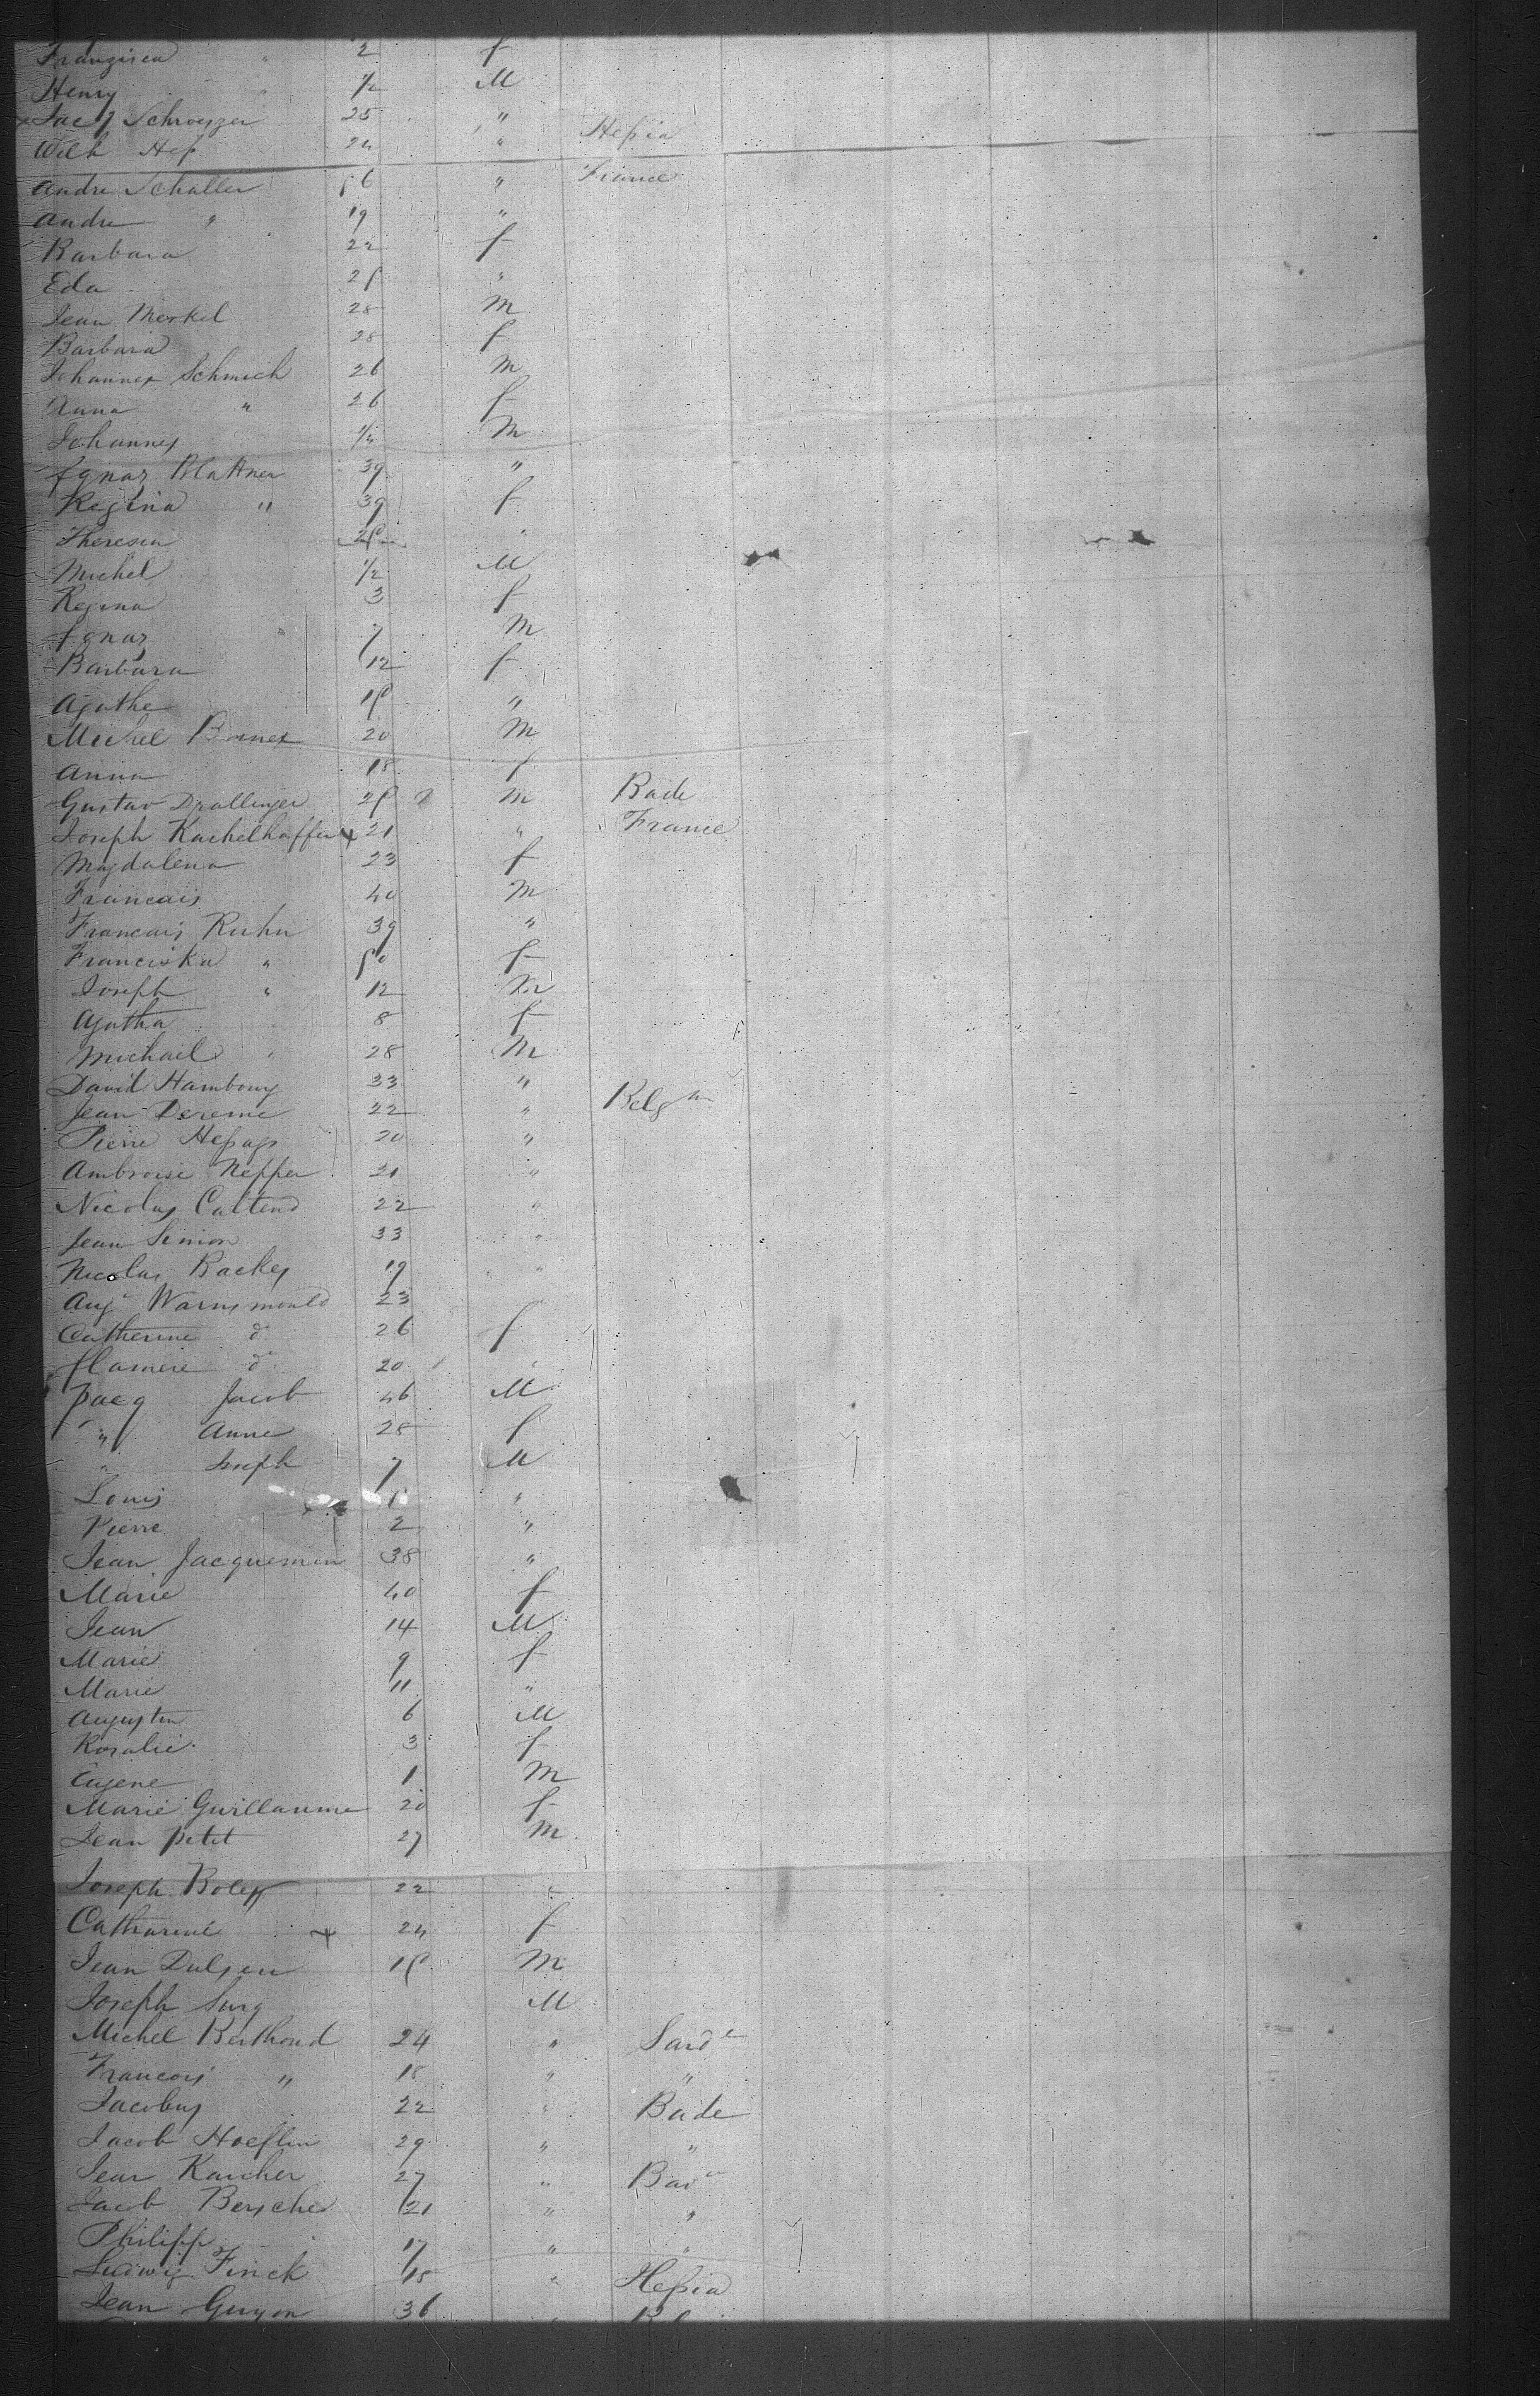 Franzisca " 2 f
Henry " 1/2 M
Jacq Schroyzer 25 "
Wilh Heß 24 " Heßia
Andre Schaller 56 " France
Andre " 19 "
Barbara 22 f
Eda 25 "
Jean Merkel 28 M
Barbara 28 f
Johannes Schmich 26 M
Anna " 26 f
Johannes 1/4 M
Ignaz Blattner 39 "
Regina " 39 f
Theresia "
Michel 1/2 M
Regina 3 f
Ignaz 7 M
Barbara 12 f
Agathe 15 "
Michel 20 M
Anna 18 f
Gustav Drollinger 25 M Bade
Joseph Kachelhoffer 21 " France
Magdalena 23 f
Francais 40 M
Francais Ruhn 39 "
Franciska " 50 f
Joseph " 12 M
Agatha 8 f
Michail " 28 M
David Hambourg 33 "
Jean Dereme 22 " Belgm
Pierre 20 "
Ambroise Neppen 21 "
Nicolas 22 "
Jean Simon 33 "
Nicolas Backes 19 "
Aug Warnsmould 23
Catherine do 26 f
do 20 "
Jacob 46 M
" Anne 28 f
" Joseph 7 M
Louis "
Pierre 2 "
Jean Jacquemin 38 "
Marie 40 f
Jean 14 M
Marie 9 f
Marie 11 "
Augustin 6 M
Rosalie 3 f
Eugene 1 M
Marie Guillaume 20 f
Jean petit 27 M
Joseph 22 "
Catharine 24 f
Jean 15 M
Joseph M
Michel Berthoud 24 " Sarde
Francois " 18 " "
Jacobus 22 " Bade
Jacob Hoeflin 29 " "
Jean Karcher 27 " Bava
Jacob Bersche 21 " "
Philipp 17 " "
Ludwig Finck 18 " Heßia
Jean Guyon 36 "